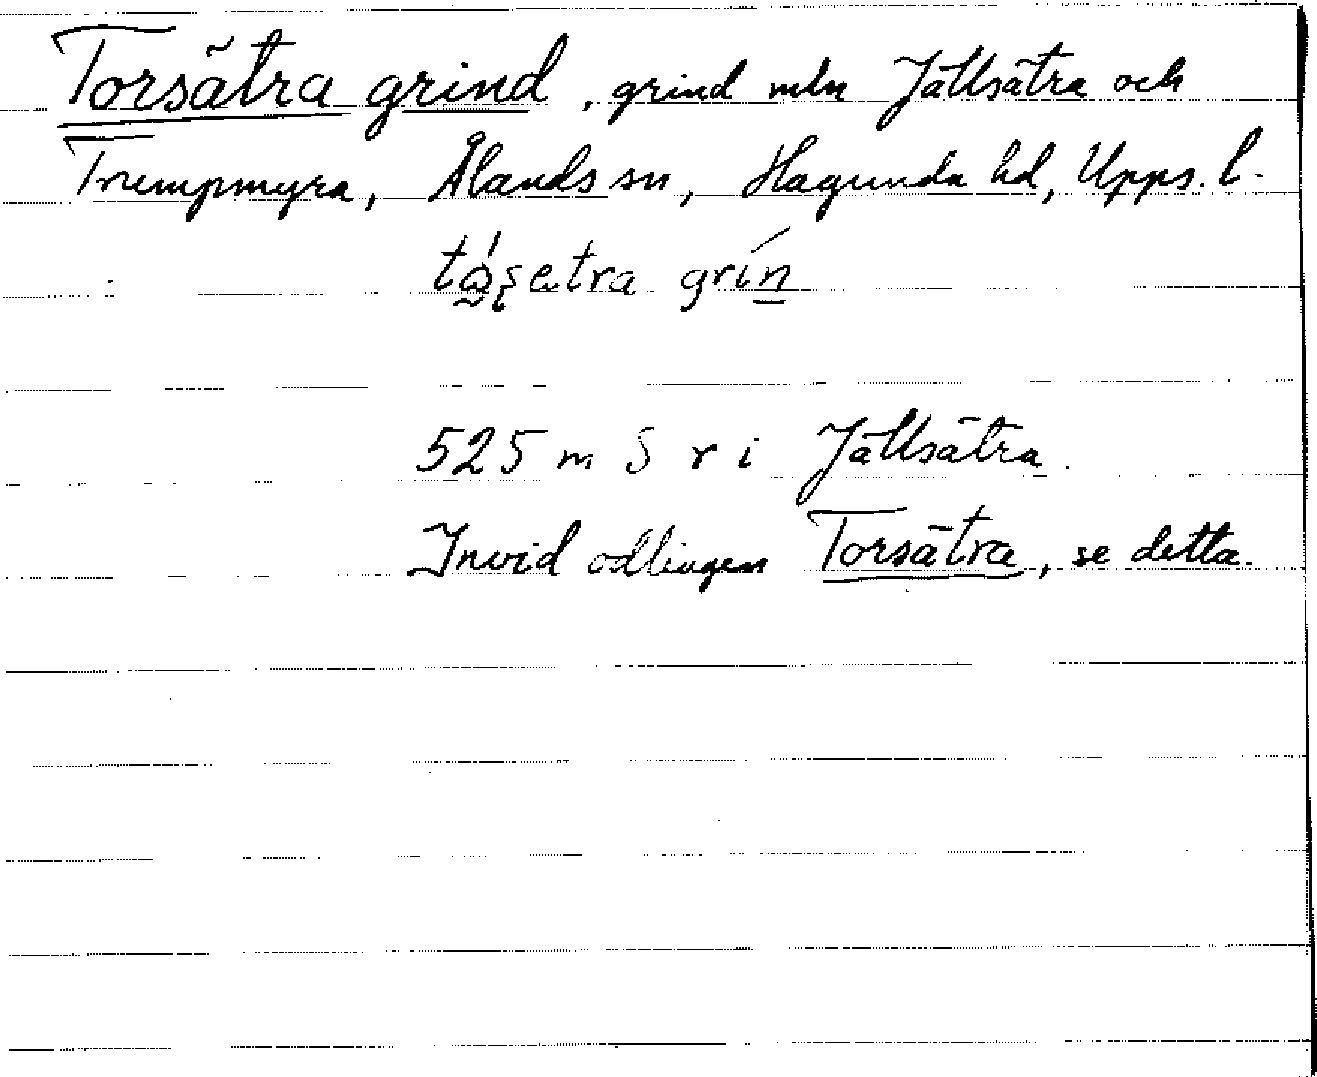 Torsätra grind, grind mln Jällsätra och
Trempmyra, Ålands sn, Hagunda hd, Upps. l.
grin
525 m S r i Jällsätra.
Invid odlingen Torsätra, se detta.